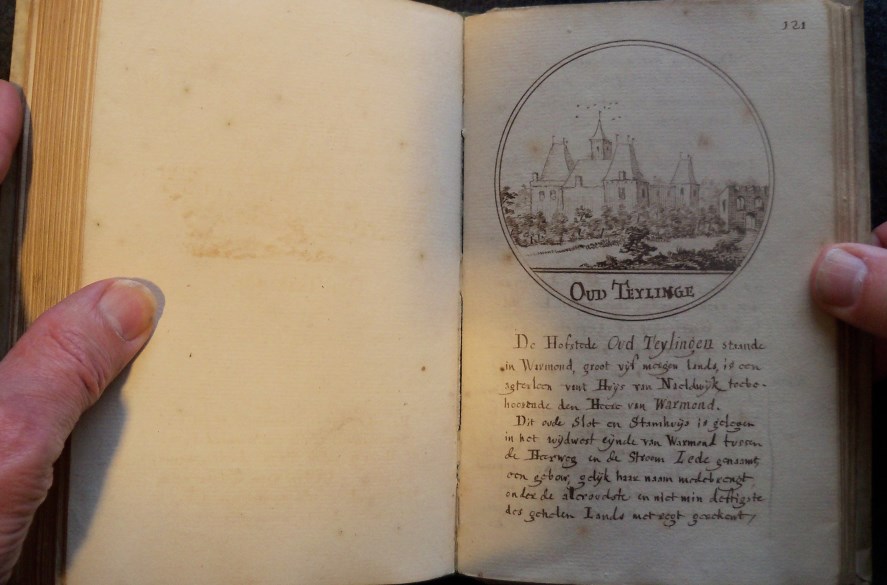 121
OUD TEYLINGE
De Hofstede Oud Teylingen staande
in Warmond, groot vijf morgen lands, is een
agterleen vant Huys van Naeldwijk toebe-
hoorende den Heere van Warmond.
Dit oude Slot en Stamhuys is gelegen
in het wijdwest eijnde van Warmond tussen
de Heerweg en de Stroom Lede genaamt,
een gebow, gelijk haar naam medebrengt,
onder de alleroudste en niet min deftigste
des gehelen Lands met regt gerekent/